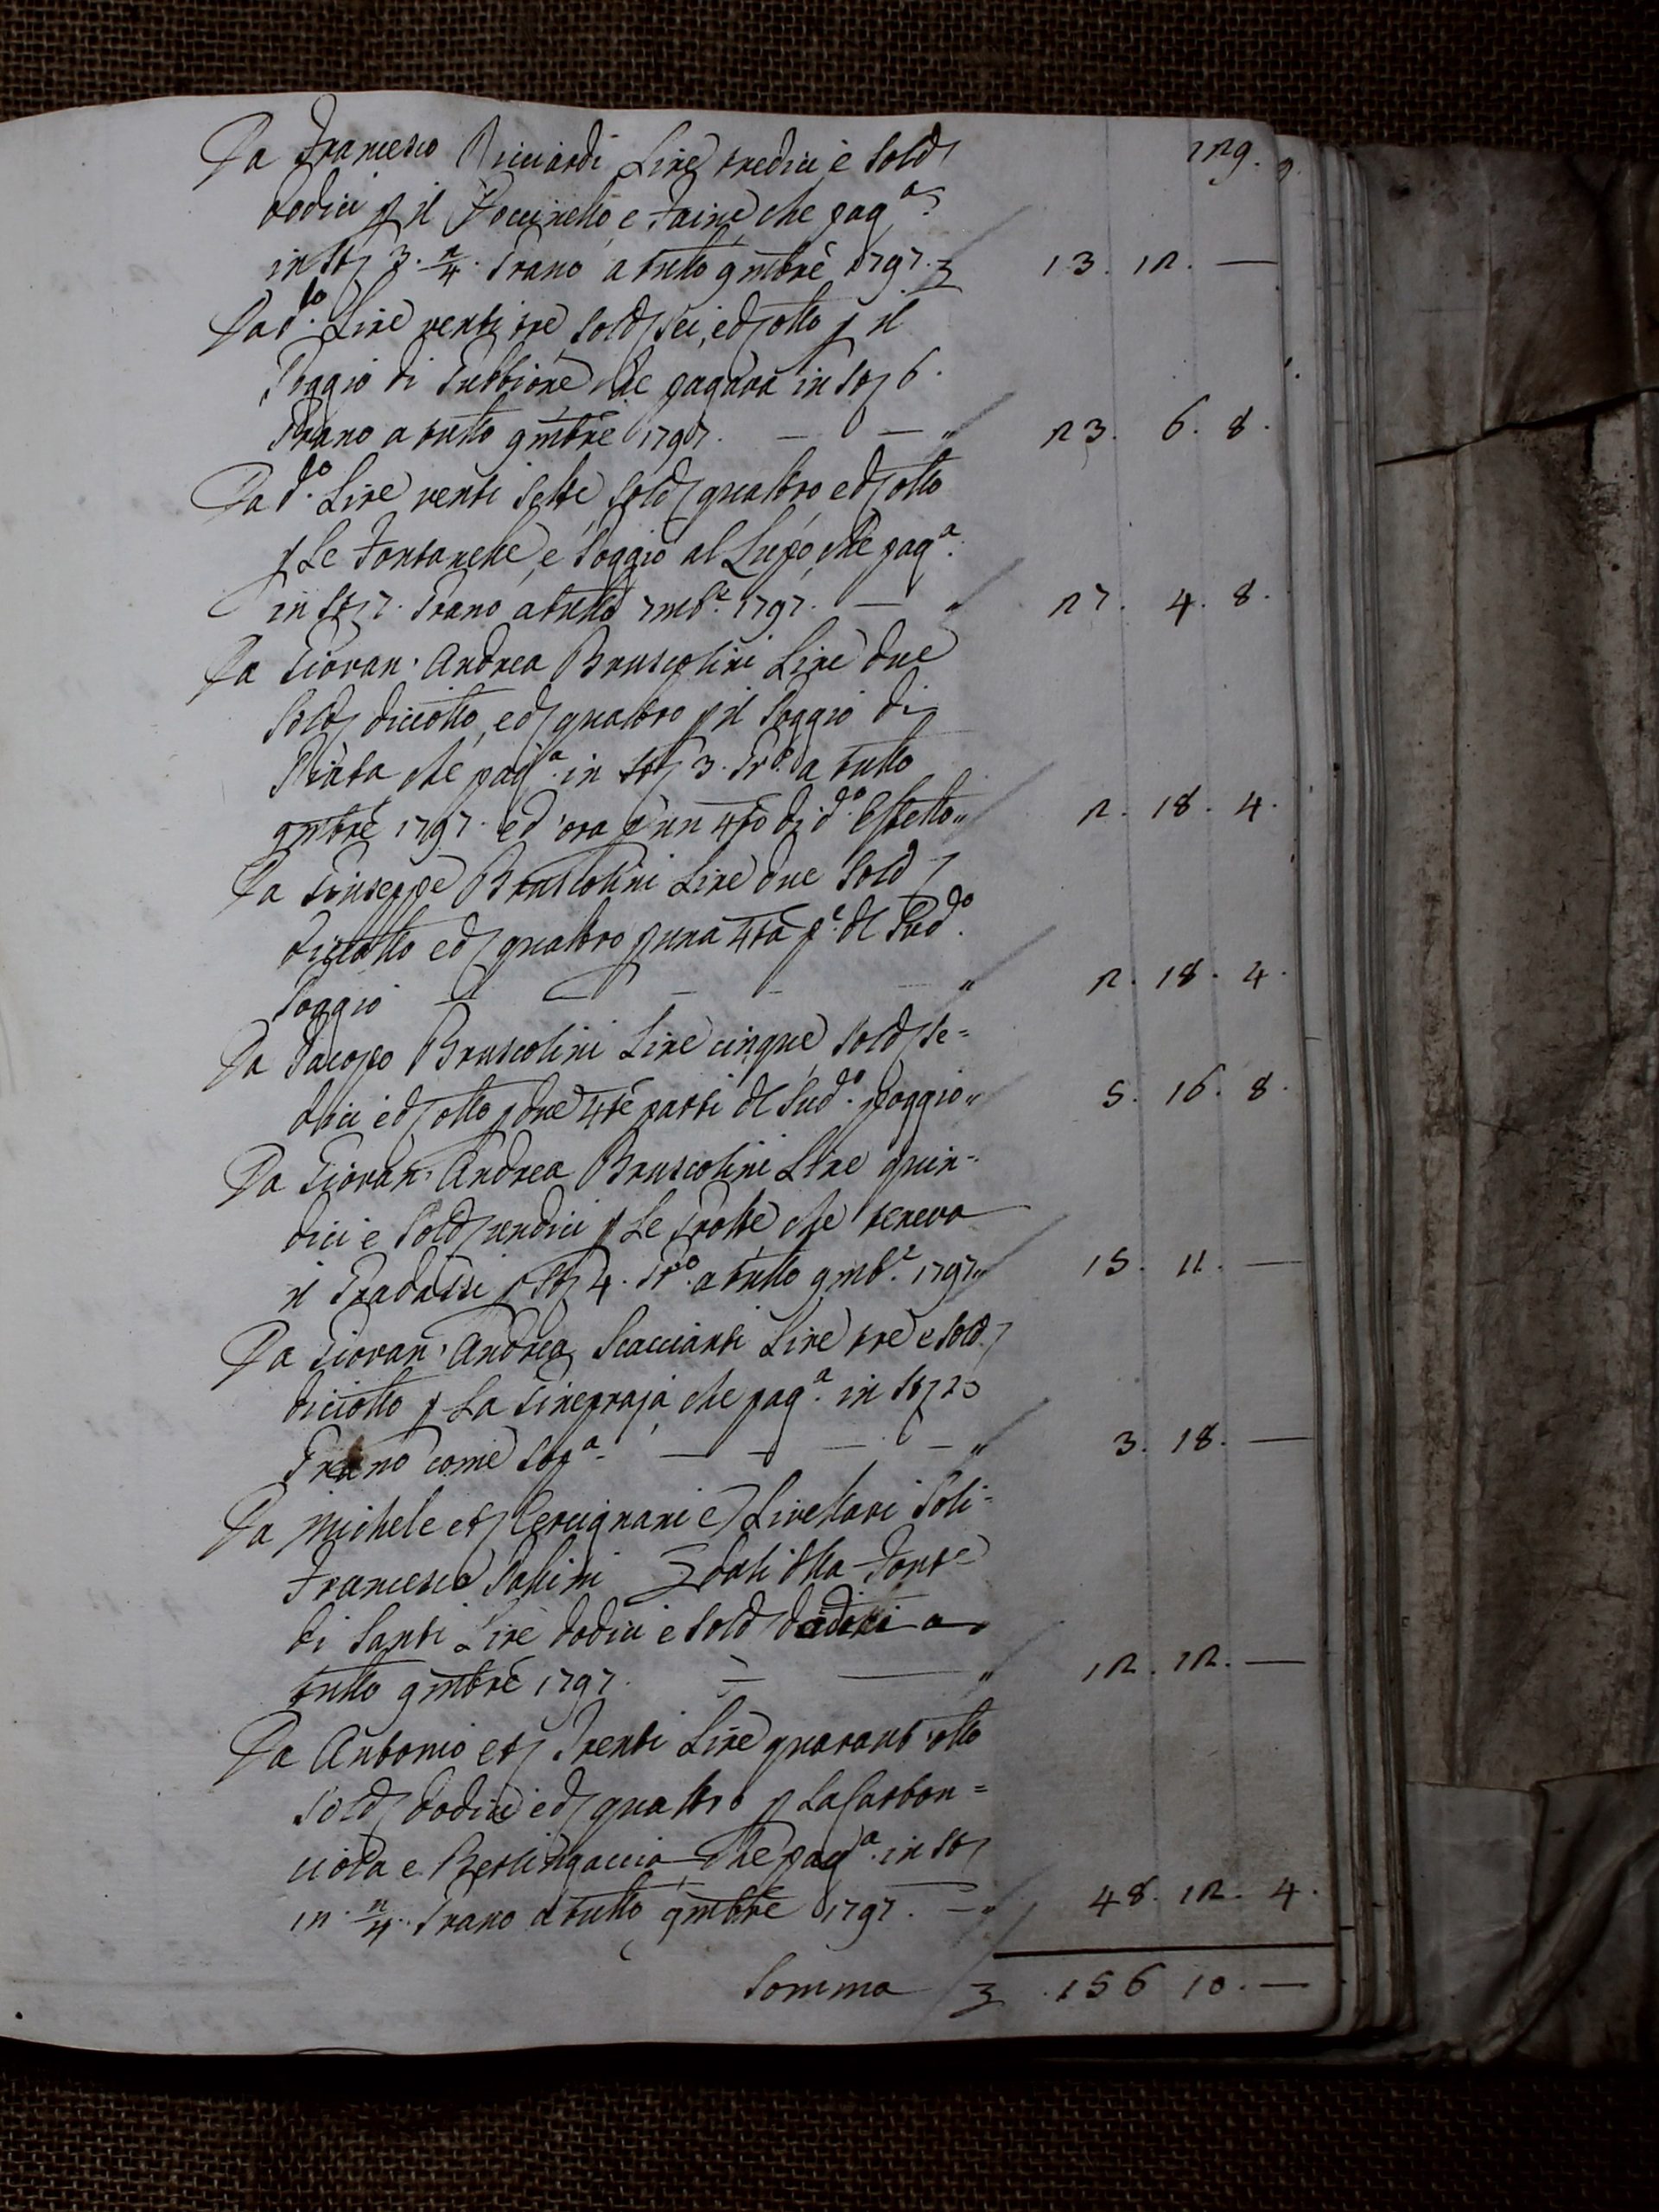 129.
Da Francesco Ricciardi Lire tredici e Sold
dodici p il Poccinello, e Faine che pag.a
in St 3. 2/4. Grano a tutto 9mbrè 1797. 13. 12. —
Da d.o Lire venti tre, Sold sei, e d otto p il
Poggio di Gubbione che pagava in St 6.
Grano a tutto 9mbrè 1797. — — „ 23. 6. 8.
Da d.o Lire venti sette, Sold quattro, e d otto
p Le Fontanelle, e Poggio al Lupo, che pag.a
in St 7. Grano a tutto 7mb.e 1797. — „ 27. 4. 8.
Da Giovan. Andrea Bruscolini Lire due
Sold diciotto, e d quattro p il Poggio di
che pag.a in St 3. Gr.o a tutto
9mbrè 1797. ed ora p un 4to di d.o Effetto „ 2. 18. 4.
Da Giuseppe Bruscolini Lire due Sold
diciotto e d quattro p una 4ta p.e del Sud.o
Poggio — — — — „ 2. 18. 4.
Da Jacopo Bruscolini Lire cinque, Sold Se=
dici e d otto p due 4te parti del Sud.o Poggio „ 5. 16. 8.
Da Giovan. Andrea Bruscolini Lire quin=
dici e Sold undici p Le Grotte che teneva
il Gradassi p St 4. Gr.o a tutto 9mb.e 1797 „ 15. 11. —
Da Giovan. Andrea Scaccianti Lire tre e Sold
diciotto p La Ginepraja che pag.a in St
Grano come Sop.a — — — — „ 3. 18. —
Da Michele et Cercignani e Livellari Soli=
Francesco Pallini dali della Fonte
di Santi Lire dodici e Sold dodici a
tutto 9mbrè 1797. — — „ 12. 12. —
Da Antonio et Trenti Lire quarant'otto
Sold dodici e d quattro p La Carbon=
ciola e Berlingaccio che pag.a in St
12. 2/4. Grano a tutto 9mbrè 1797. — „ 48. 12. 4.
Somma 156 10. —